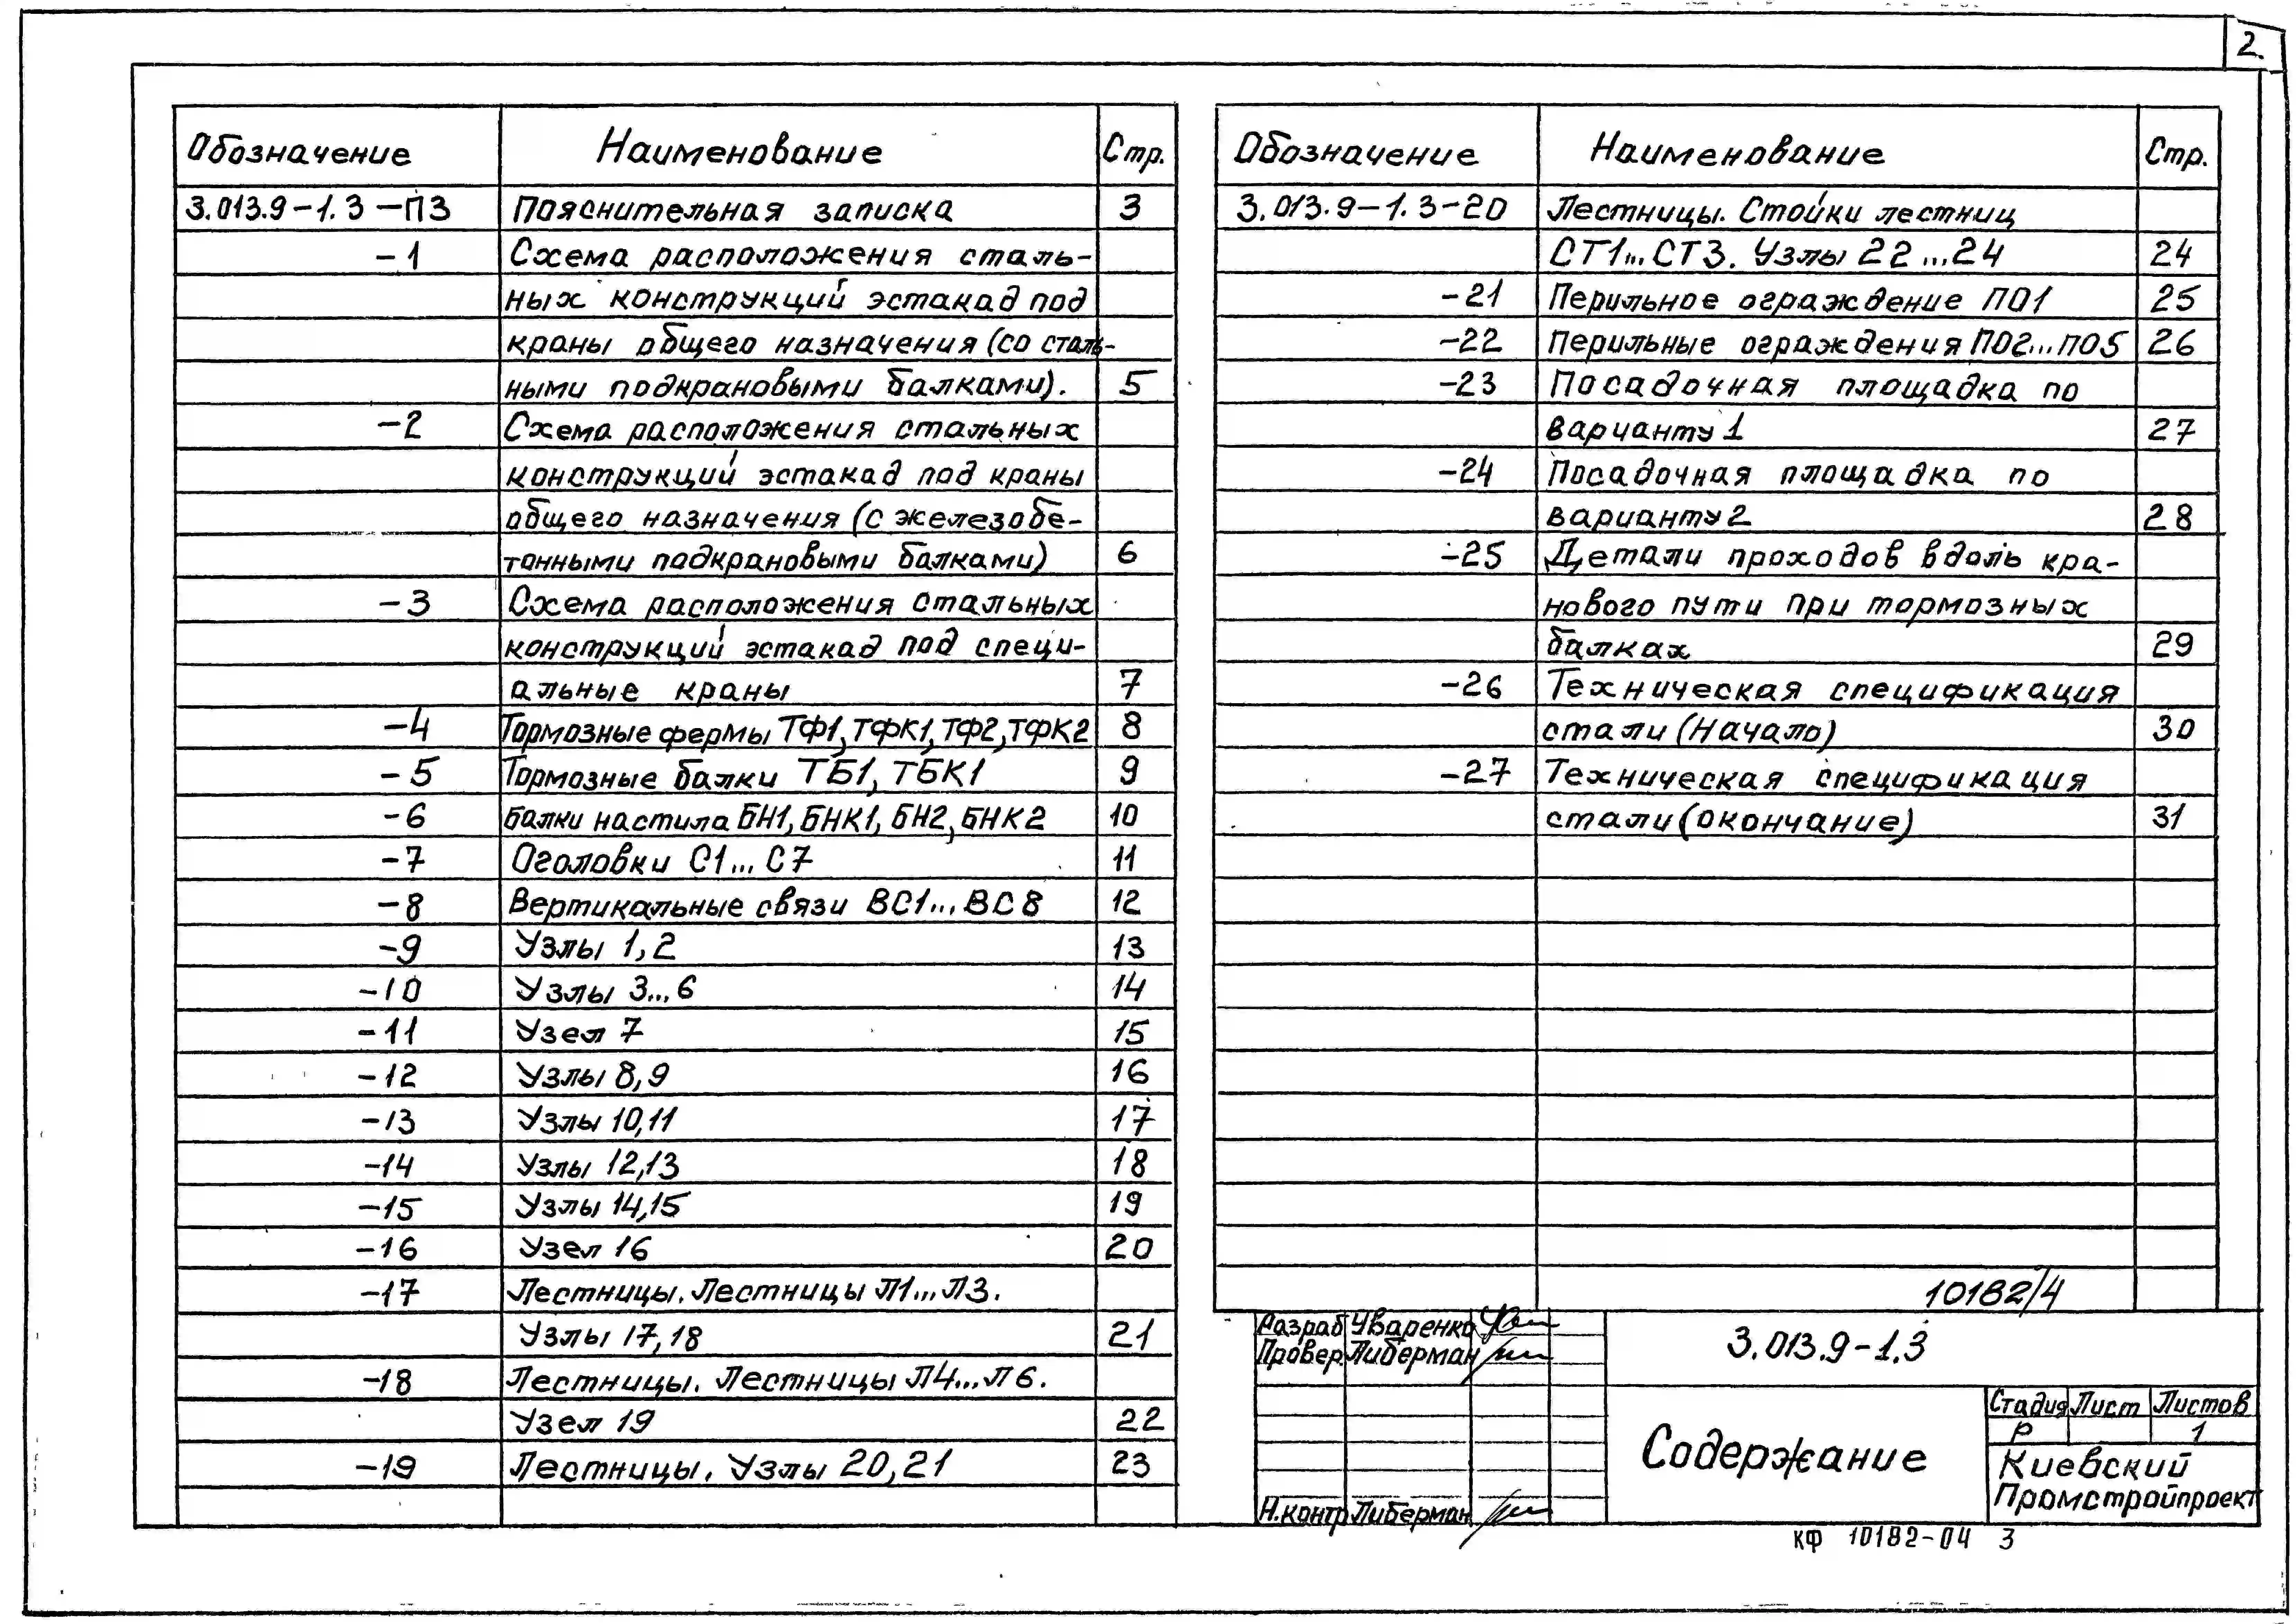 2.
Обозначение Наименование Стр.
3.013.9-1.3-ПЗ Пояснительная записка 3
-1 Схема расположения сталь-
ных конструкций эстакад под
краны общего назначения (со сталь-
ными подкрановыми балками). 5
-2 Схема расположения стальных
конструкций эстакад под краны
общего назначения (с железобе-
тонными подкрановыми балками) 6
-3 Схема расположения стальных
конструкций эстакад под специ-
альные краны 7
-4 Тормозные фермы ТФ1, ТФК1, ТФ2, ТФК2 8
-5 Тормозные балки ТБ1, ТБК1 9
-6 Балки настила БН1, БНК1, БН2, БНК2 10
-7 Оголовки С1...С7 11
-8 Вертикальные связи ВС1...ВС8 12
-9 Узлы 1,2 13
-10 Узлы 3...6 14
-11 Узел 7 15
-12 Узлы 8,9 16
-13 Узлы 10,11 17
-14 Узлы 12,13 18
-15 Узлы 14,15 19
-16 Узел 16 20
-17 Лестницы. Лестницы Л1...Л3.
Узлы 17,18 21
-18 Лестницы. Лестницы Л4...Л6.
Узел 19 22
-19 Лестницы. Узлы 20,21 23
Обозначение Наименование Стр.
3.013.9-1.3-20 Лестницы. Стойки лестниц
СТ1...СТ3. Узлы 22...24 24
-21 Перильное ограждение ПО1 25
-22 Перильные ограждения ПО2...ПО5 26
-23 Посадочная площадка по
варианту 1 27
-24 Посадочная площадка по
варианту 2 28
-25 Детали проходов вдоль кра-
нового пути при тормозных
балках 29
-26 Техническая спецификация
стали (Начало) 30
-27 Техническая спецификация
стали (окончание) 31
10182/4
Разраб Уваренко
Провер. Либерман
Н.контр Либерман
3.013.9-1.3
Содержание
Стадия Лист Листов
Р 1
Киевский
Промстройпроект
КФ 10182-04 3